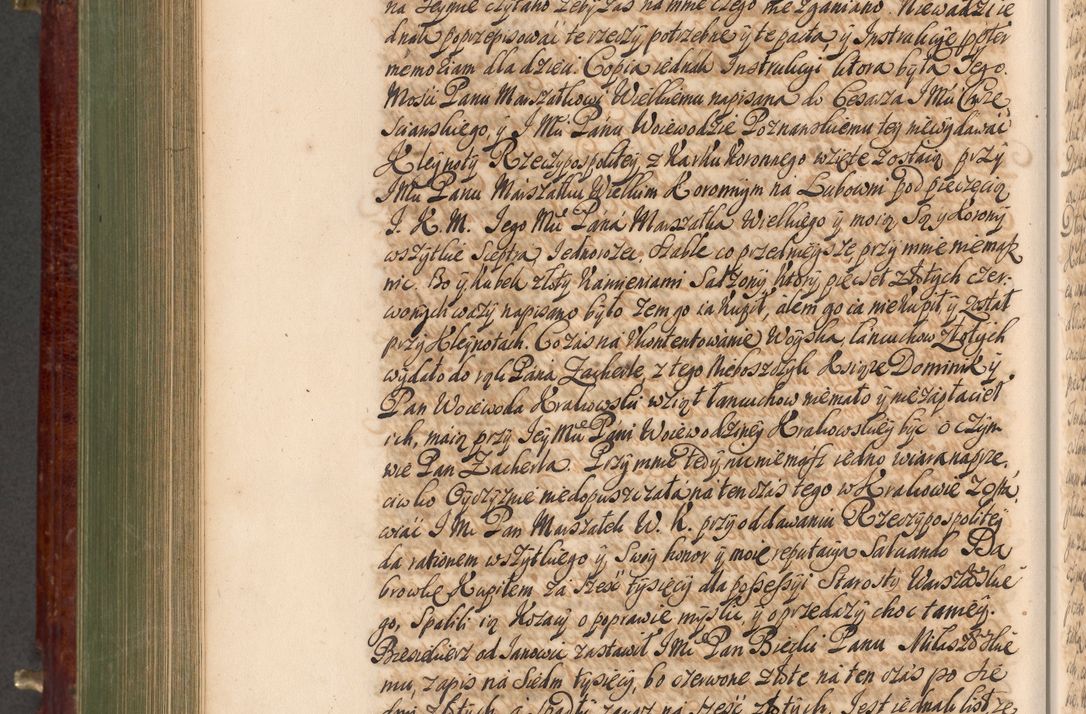 na Seymie czytano żeby zas na mnie czego nie zganiano. Niewadzi ie
dnak poprzepisować te rzeczy potrzebne y te pacta, y Instrukcyje po ter
memoriam dla dzieci. Copia iednak Instrukcyi ktora była Jego
Mości Panu Marszałkowi Wielkiemu napisana do Cesarza J Mci Chrze
sciańskiego, y J Mci Panu Woiewodzie Poznanskiemu tey niewydawać
Kleynoty Rzeczypospolitey z skarbu koronnego wzięte zostaią przy
J Mci Panu Marszałku Wielkim Koronnym na Lubowni pod pieczęcią
J. K. M. Jego Mci Pana Marszałka Wielkiego y moią Są y Korony
wszytkie Sceptra, Jednorożec, Szable co przednieysze przy mnie niemasz
nic. Bo y kubek złoty Kamieniami Sadzony, ktory pięćset złotych czer-
wonych waży napisano było żem go ia kupił, alem go ia nie kupił, y został
przy Kleynotach. Co zas na kontentowanie Woyska, łancuchow złotych
wydało do rąk Pana Zacherle, z tego Nieboszczyk Ksiąze Dominik y
Pan Woiewoda Krakowski wziął łancuchow niemało y niezapłacieł
ich, maią przy Jey Mci Pani Woiewodziney Krakowskiey być o czym
wie Pan Zacherla. Przy mnie tedy nic niemasz iedno wiara naprze-
ciwko Oyczyznie niedopuszczała na ten czas tego w Krakowie zosta
wiać J Mc Pan Marszałek W. K. przy oddawaniu Rzeczypospolitey
da rationem wszytkiego y Swoy honor y moie reputacyą Salvando Da
browkę Kupiłem za sześć tysięcy dla possessyi Starosty Warszawskie
go, Spalili ią Kozacy o poprawie myślić, y o przedaży choc taniey.
Bresidierz od Janowic zastawił J Mc Pan Bierzki Panu Miłaszewskie
mu, zapis na Siedm tysięcy, bo czerwone złote na ten czas po sie
dmi złotych, a Spadły zaraz na sześć złotych. Jest iednak list ze